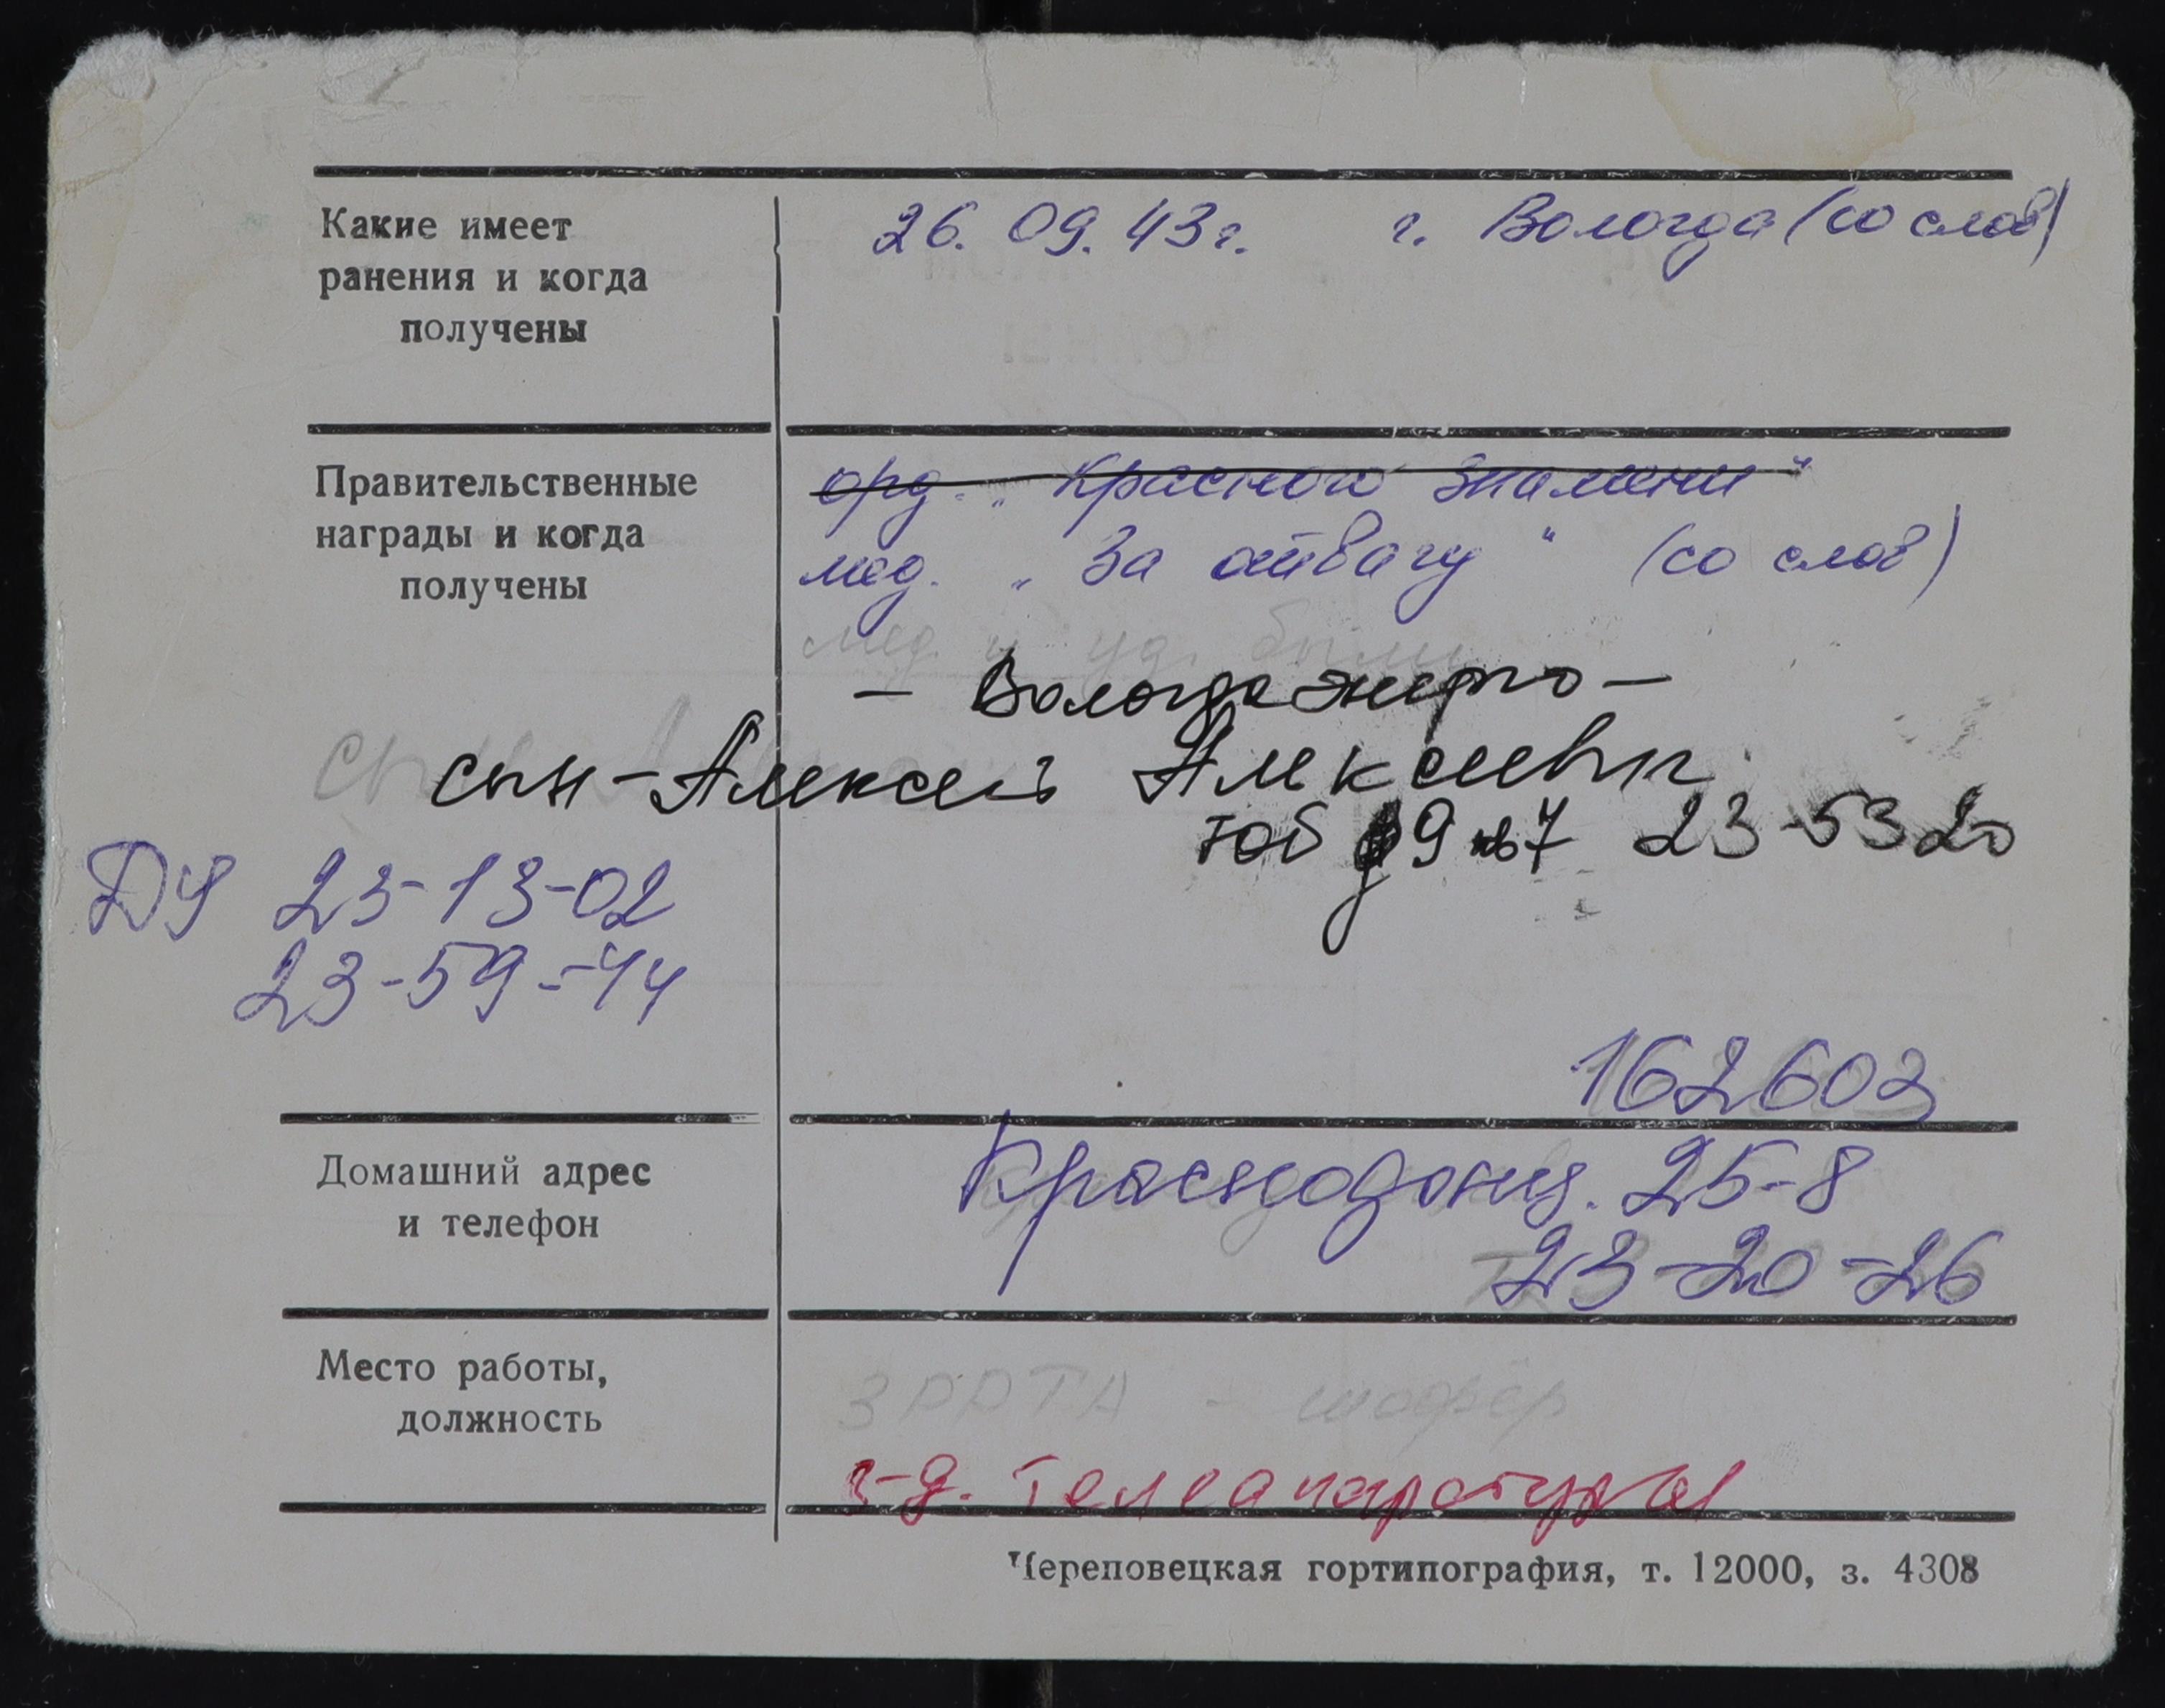 Какие имеет
ранения и когда
получены
26. 09. 43 г. г. Вологда (со слов)
Правительственные
награды и когда
получены
орд. „Красного Знамени"
мед. „За отвагу" (со слов)
мед. и уд. были
- Вологдаэнерго -
сын - Алексей Алексеевич
23-53 20
ДУ 23-13-02
23-59-44
162602
Домашний адрес
и телефон
Краснодонц. 25-8
23-20-26
Место работы,
должность
ЗРРТА - шофёр
з-д. Телеапаратуры
Череповецкая гортипография, т. 12000, з. 4308